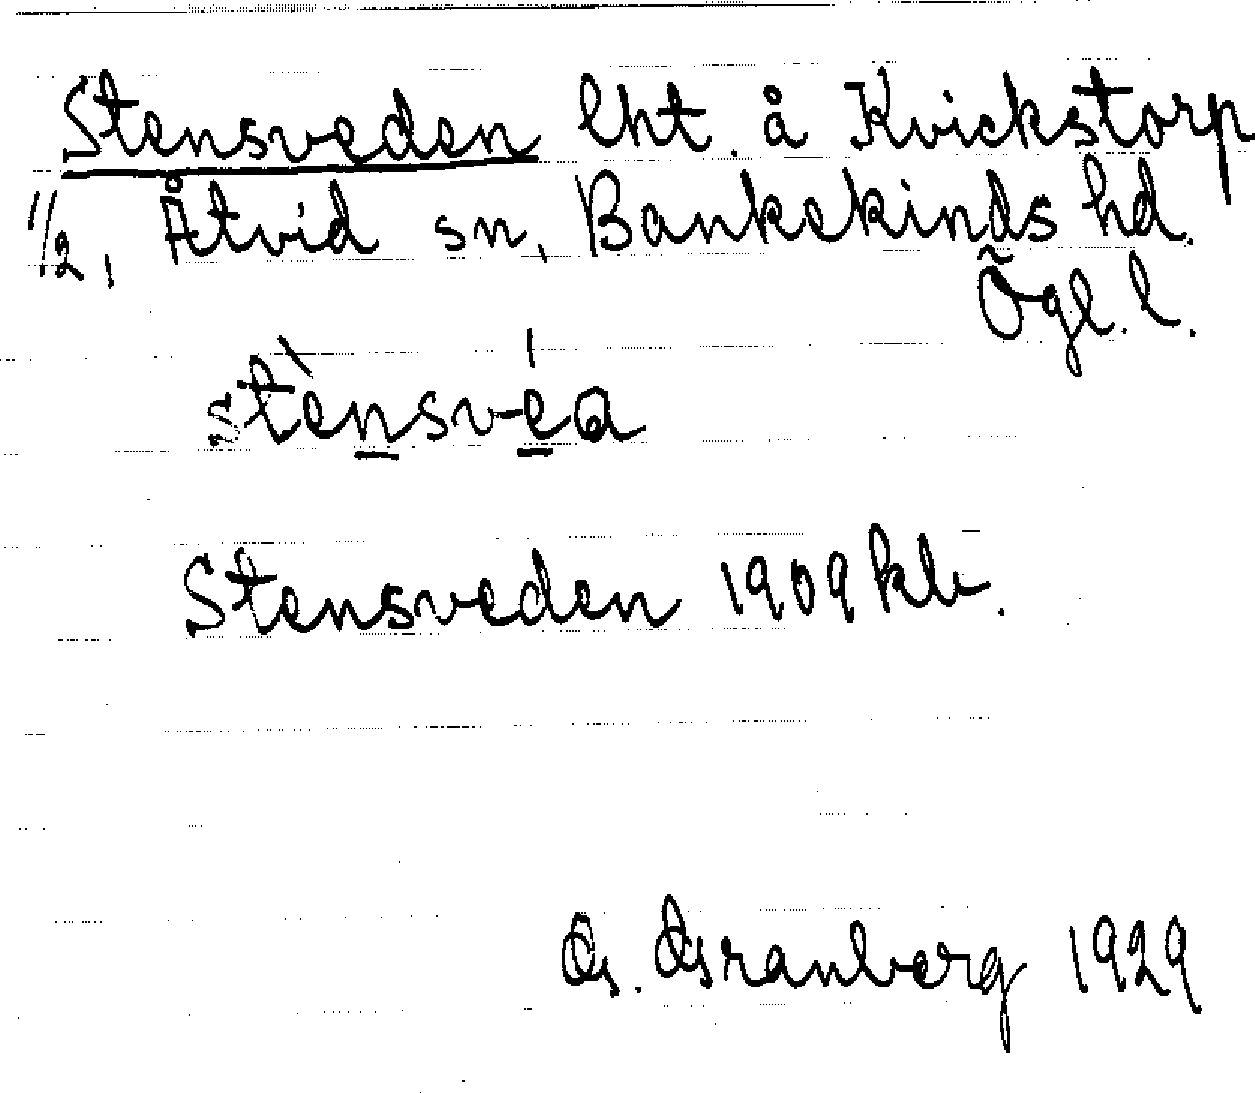 Stensveden lht. å Kvickstorp
1/2, Åtvid sn, Bankekinds hd.
Ögl. l.
stènsvéa
Stensveden 1909 kb.
G. Granberg 1929